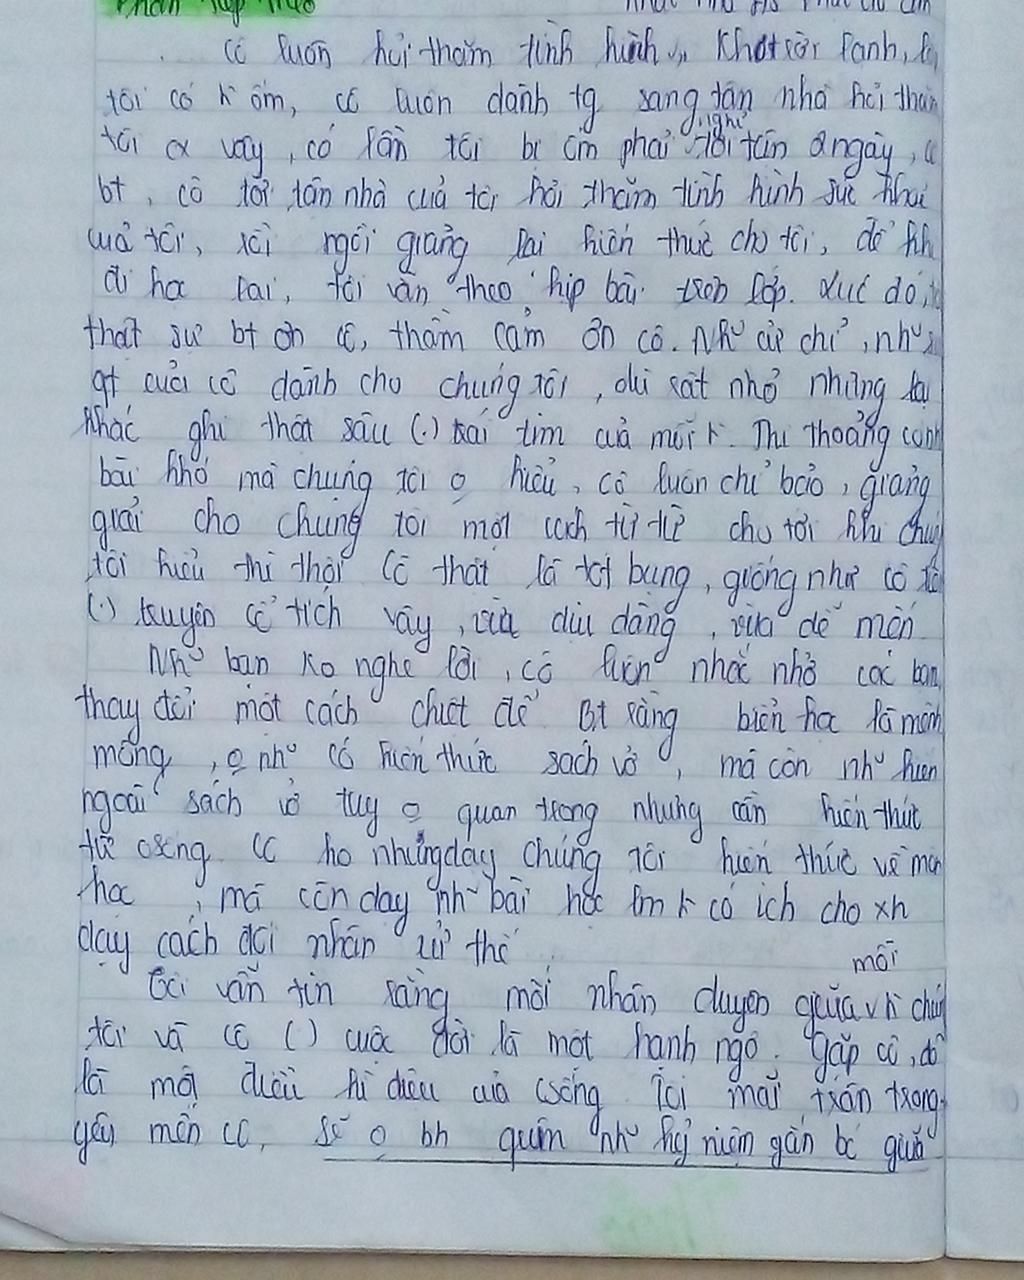 Cô luôn hỏi thăm tình hình,, Khi trời lạnh,
tôi có h ốm, cô luôn dành tg sang tận nhà hỏi thăm
tôi vậy, có lần tôi bị ốm phải nghỉ tới tận 2 ngày,
bt, cô tới tận nhà của tôi hỏi thăm tình hình sức khoẻ
của tôi, rồi ngồi giảng lại kiến thức cho tôi, để khi
đi học lại, tôi vẫn theo kịp bài trên lớp. Lúc đó,
thật sự bt ơn cô, thầm cảm ơn cô. Nh~ cử chỉ, nh~
qt của cô dành cho chúng tôi, dù rất nhỏ nhưng lại
khắc ghi thật sâu (.) trái tim của mỗi h. Thi thoảng
bài khó mà chúng tôi o hiểu, cô luôn chỉ bảo, giảng
giải cho chúng tôi một cách từ từ cho tới khi chúng
tôi hiểu thì thôi. Cô thật là tốt bụng, giống như cô
(.) truyện cổ tích vậy, vừa dịu dàng, vừa dễ mến
Nh~ bạn ko nghe lời, cô luôn nhắc nhở các bạn
thay đổi một cách chiệt để. Bt rằng biển học là mênh
mông, o nh~ có kiến thức sách vở, mà còn nh~ kiến
ngoài sách vở tuy o quan trọng nhưng cần kiến thức
từ csống. Cô ko những dạy chúng tôi kiến thức về môn
học, mà còn dạy nh~ bài học lm h có ích cho xh
dạy cách đối nhân xử thế
mỗi
Tôi vẫn tin rằng mối nhân duyên giữa chúng
tôi và cô (.) cuộc đời là một hạnh ngộ. Gặp cô, đó
là một điều kì diệu của csống. Tôi mãi trân trọng
yêu mến cô, sẽ o bh quên nh~ kỷ niệm gắn bó giữa